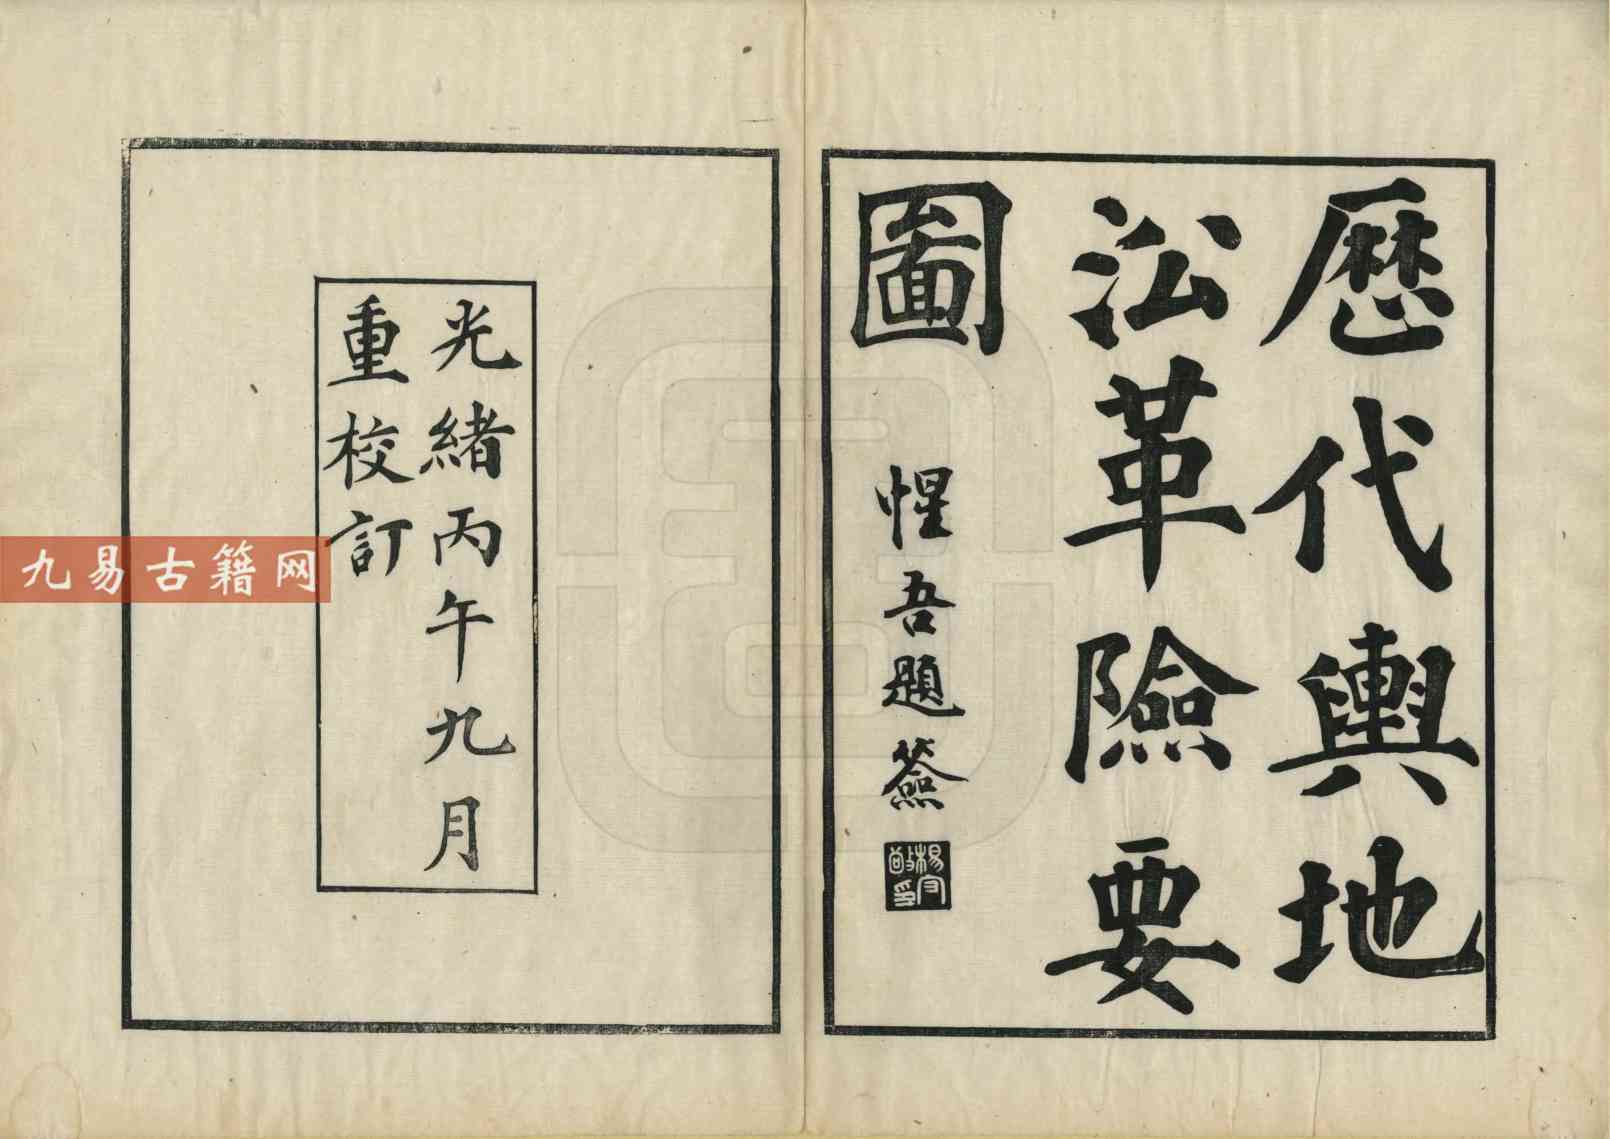 歷代輿地
㳂革險要
圖
惺吾題簽
楊守
敬印
光緒丙午九月
重校訂
九易古籍网